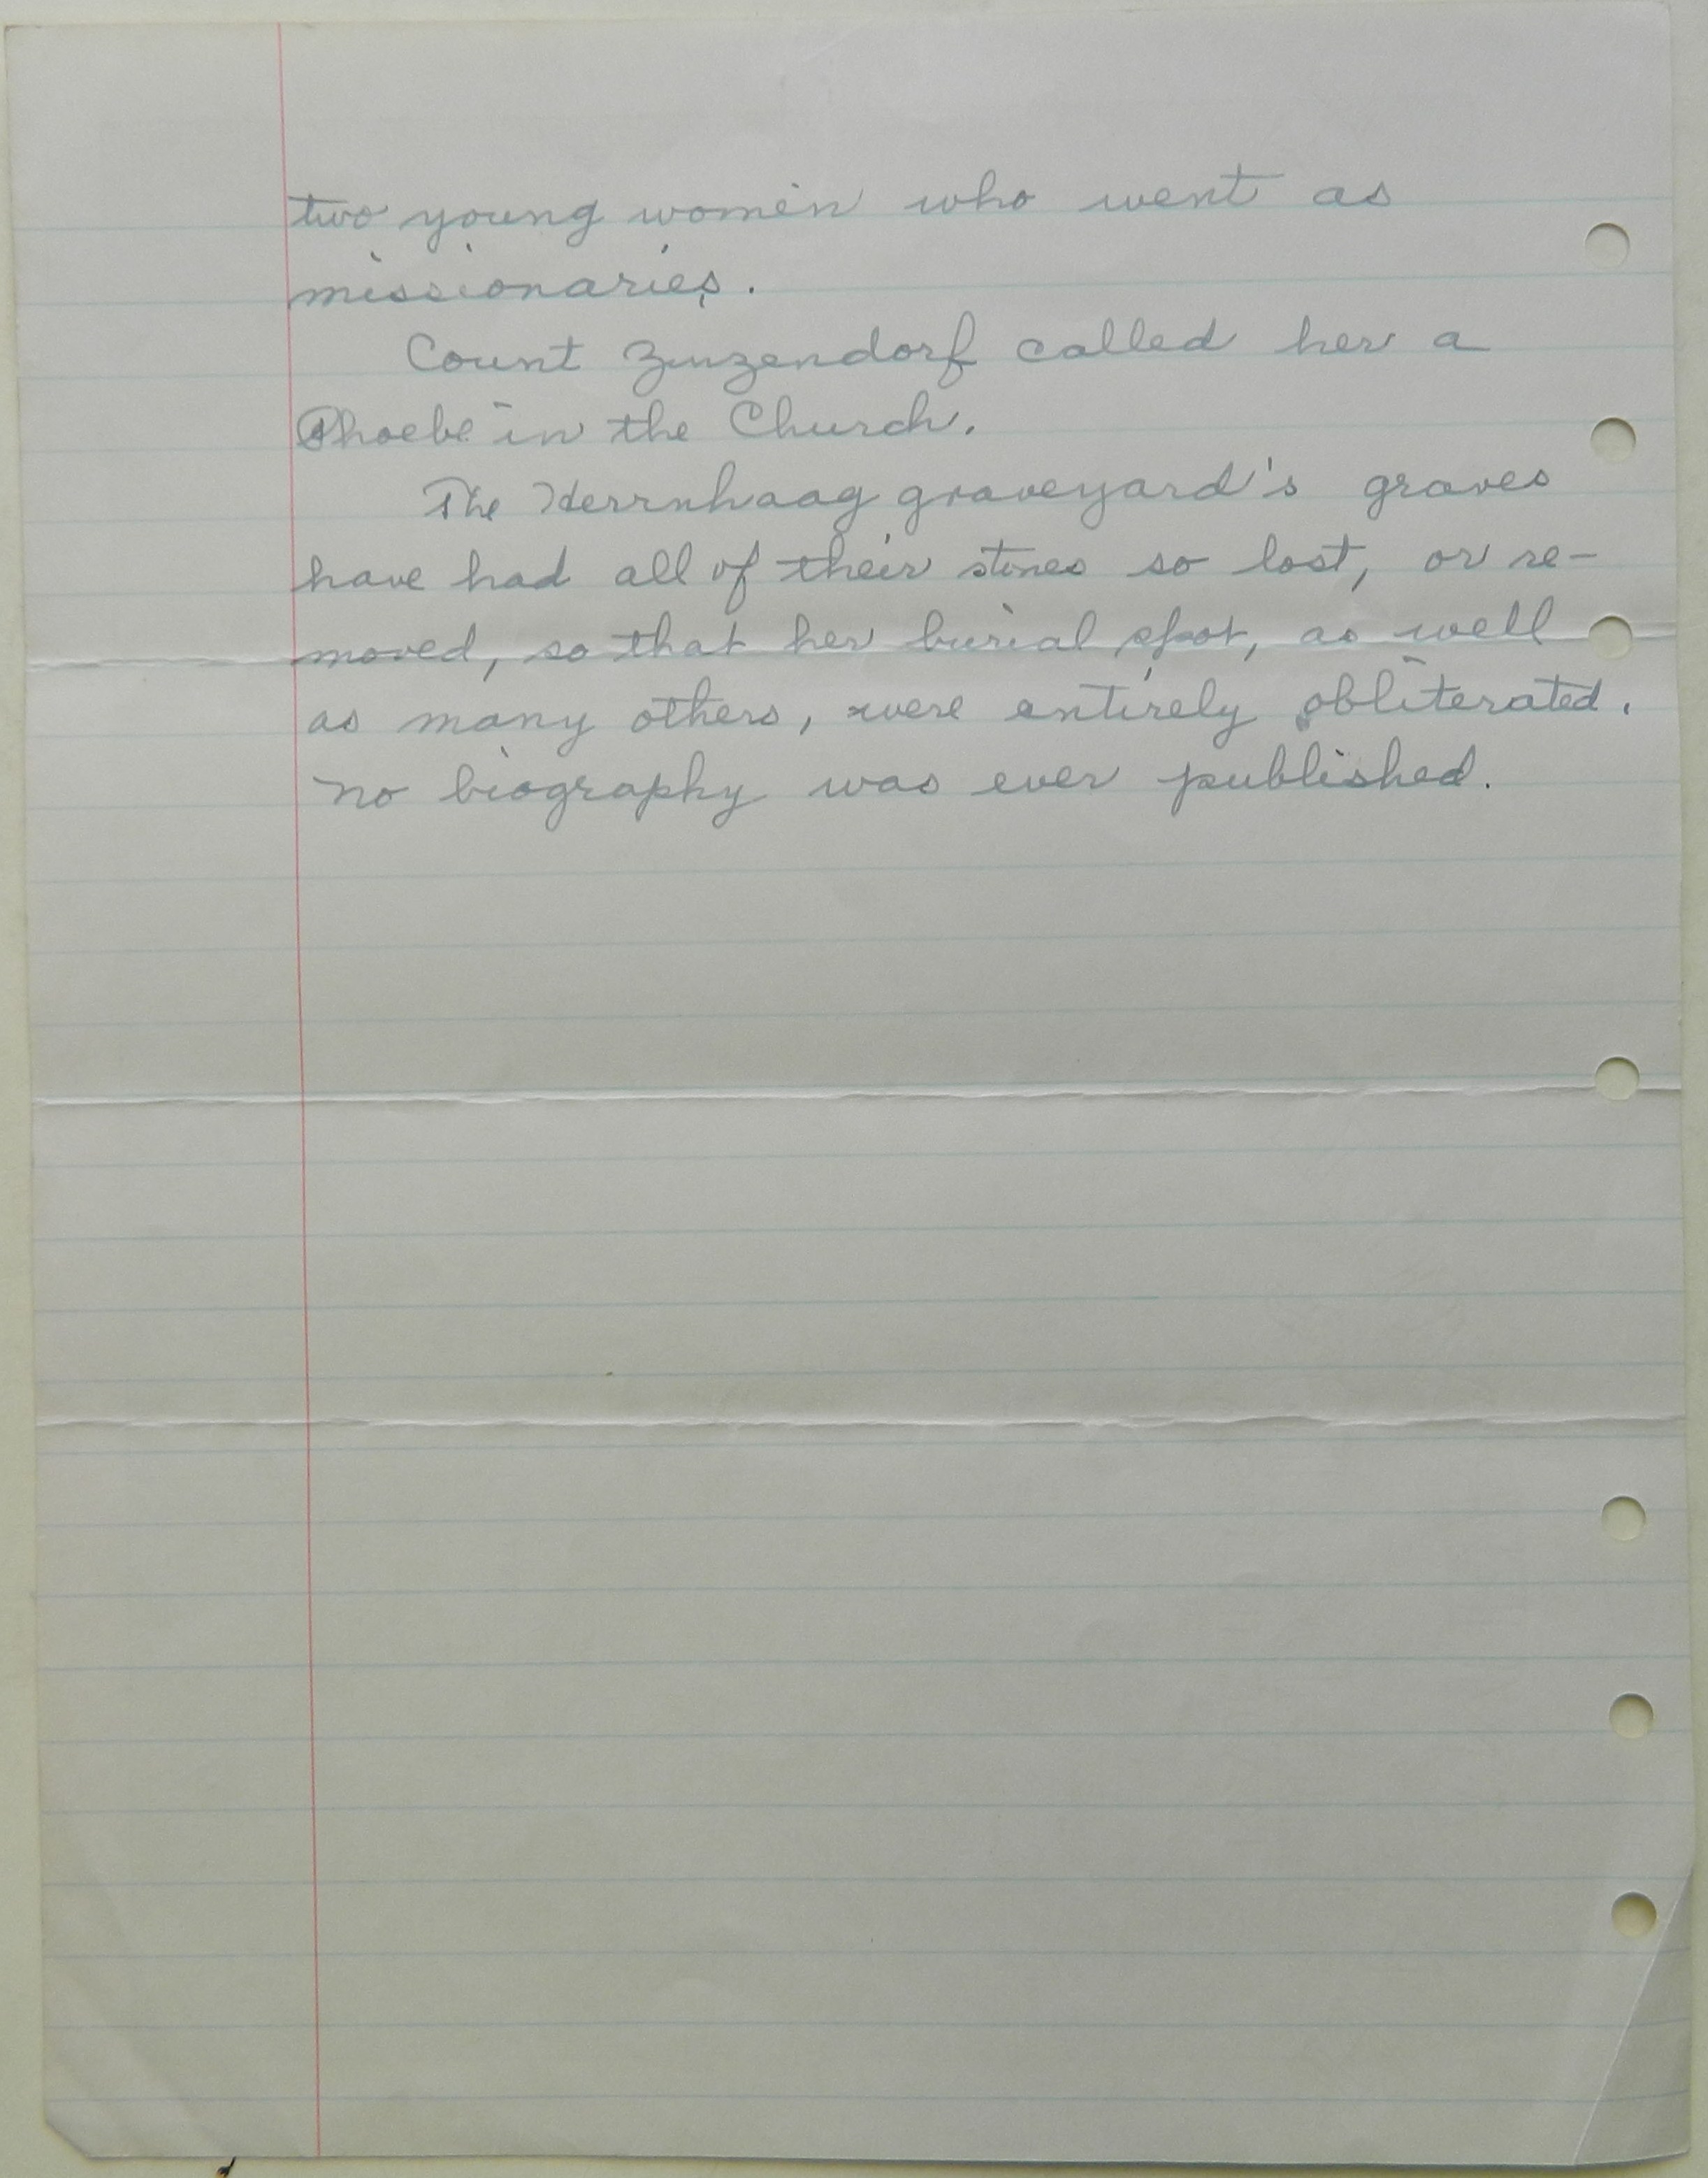 two young women who went as
missionaries.
Count Zinzendorf called her a
Phoebe in the Church.
The Herrnhaag graveyard's graves
have had all of their stones so lost, or re-
moved, so that her burial spot, as well
as many others, were entirely obliterated.
No biography was ever published.